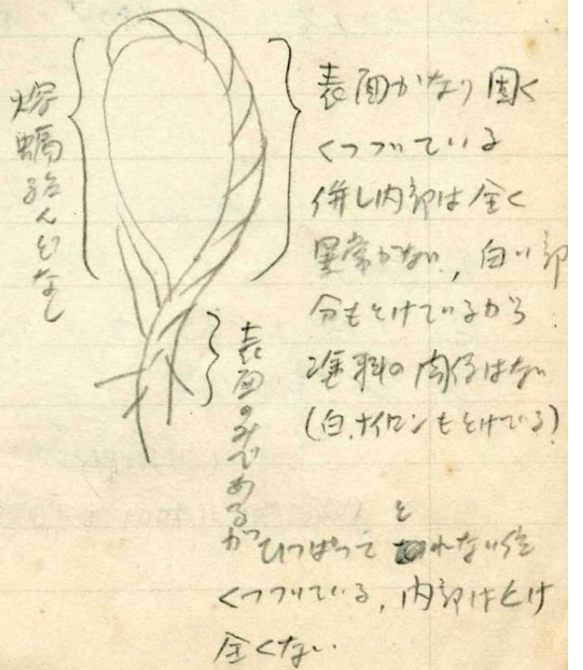 熔蝕殆んどなし
表面かなり固く
くっついている
併し内部は全く
異常がない、白い部
分もとけているから
塗料の関係はない
(白、ナイロンもとけている)
表面のみであるが
ひっぱって とれない位
くっついている、内部はとけ
全くない.